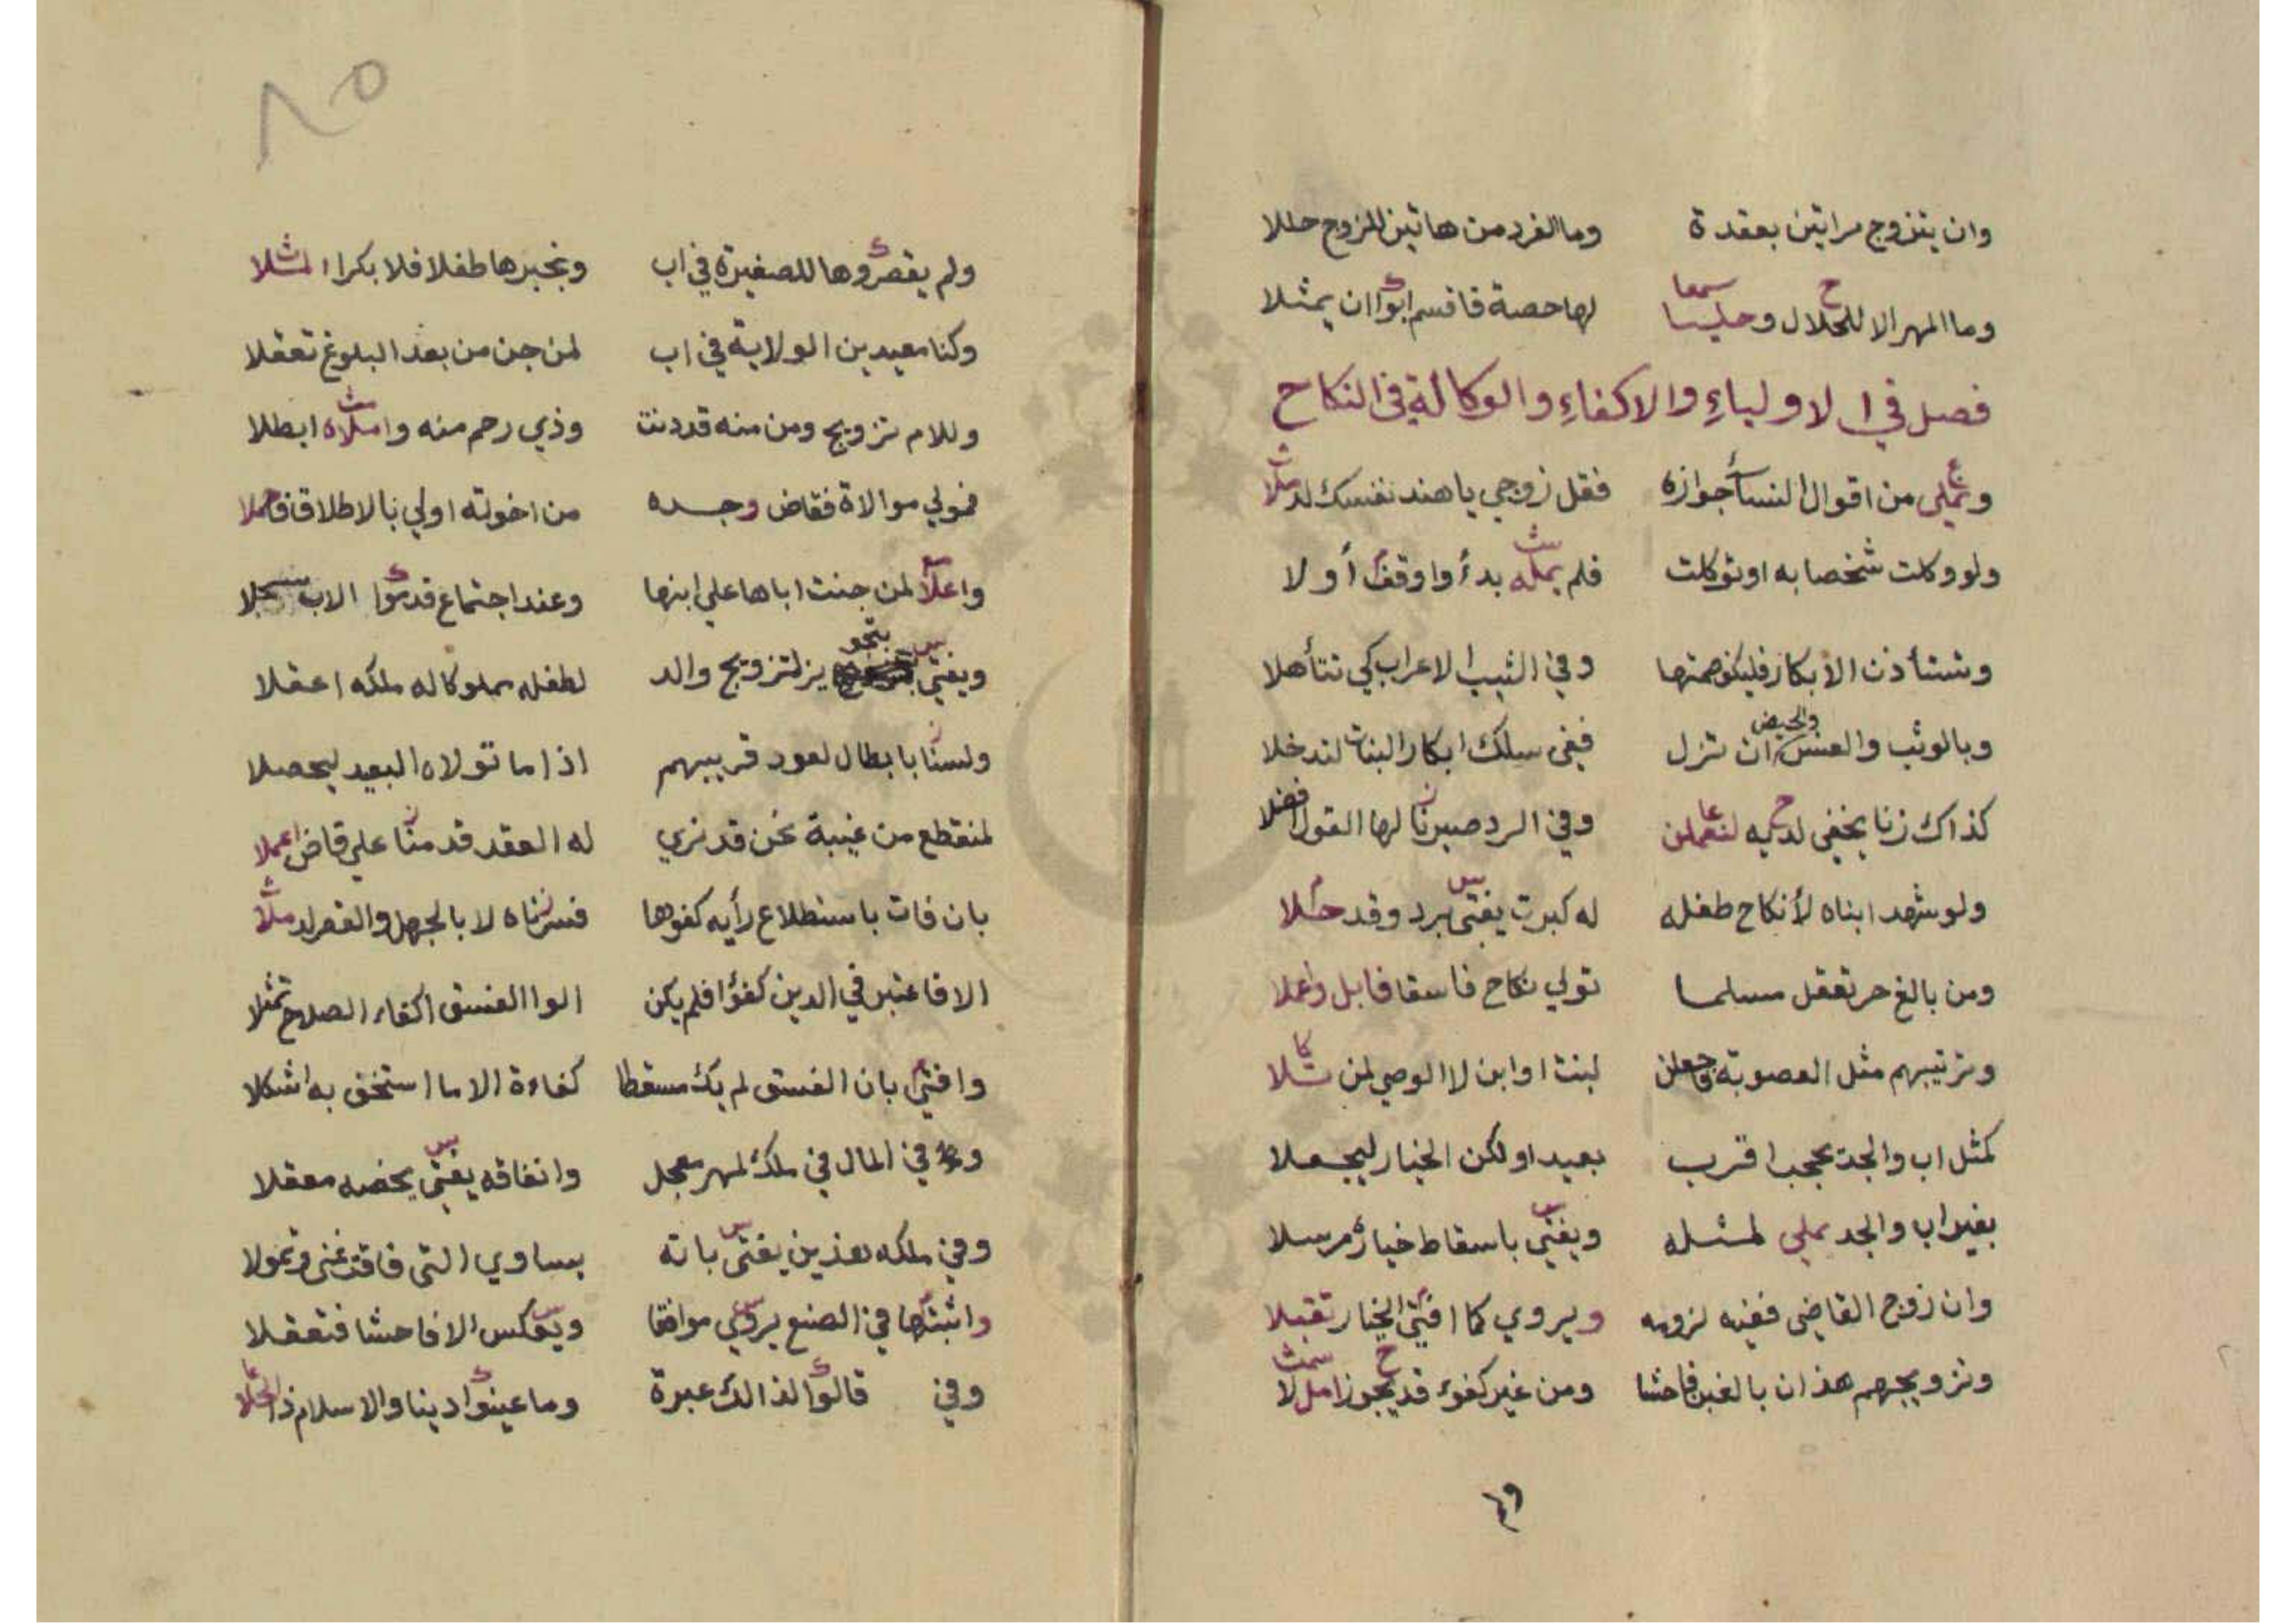 وان يتزوج مراتين بعقدة وما الفرد من هاتين للزوج حللا
وما المهر الا للحلال وحليسا لها حصة فاقسم ابوا ان يمثلا
فصل في الاولياء والاكفاء والوكالة في النكاح
من اقوال النسا جوازه فقل زوجي يا هند نفسك
ولو وكلت شخصا به او توكلت فلم يمله بدأ واوقف أولا
وتستأذن الأبكار فليكف صمتها وفي الثيب الاعراب كي تتأهلا
وبالوثب والعنس والحيض ان تزل ففي سلك ابكار البنات لتدخلا
كذاك زنا يخفى وفي الرد صيرنا لها القول افضلا
ولو شهد ابناه لأنكاح طفله له كبرت يفتى برد وقد
ومن بالغ حر تعقل مسلما تولي نكاح فاسقا فابل واعملا
وترتيبهم مثل العصوبة فاجعلن لبنت او ابن لا الوصي لمن
كمثل اب والجد يحجب اقرب بعيدا ولكن الخيار ليجعلا
بغير اب والجد يملي لمثله ويفتي باسقاط خيار مرسلا
وان زوج القاضي ففيه لزومه ويروي كما افتى الخيار تقبلا
وتزويجهم هذان بالغبن فاحشا ومن غير كفوء قد يجوز امل لا
٤٩
٨٥
ولم يقصروها للصغيرة في اب ونجبرها طفلا فلا بكرا
وكنا معيدين الولاية في اب لمن جن من بعد البلوغ تعقلا
وللام تزويج ومن منه قد دنت وذي رحم منه واملاه ابطلا
فمولي موالاة فقاض وجده من اخوته اولي بالاطلاق
لمن جنت اباها علي ابنها وعند اجتماع قدموا الاب
ويفتي بتجويز لتزويج والد لطفله مملوكا له ملكه اعقلا
ولسنا بابطال لعود قريبهم اذا ما تولاه البعيد ليحصلا
لمنقطع من غيبة نحن قد نري له العقد قدمنا علي قاض اعملا
بان فات باستطلاع رأيه كفوها فسرناه لا بالجهل والقصر
الا فاعتبر في الدين كفؤا فلم يكن الوا الفسق اكفاء الصلاح تمثلا
وافتي بان الفسق لم يك مسقطا كفاءة الا ما استخف به اشكلا
في المال في ملك لمهر معجل وانفاقه يفتى يخصه معقلا
وفي ملكه هذين يفتى بانه يساوي التي فاقت غنى وتمولا
واثبتها في الصنع يروي موافقا ويعكس الا فاحشا فتعقلا
وفي قالوا لذالك عبرة وما عينوا دينا والاسلام